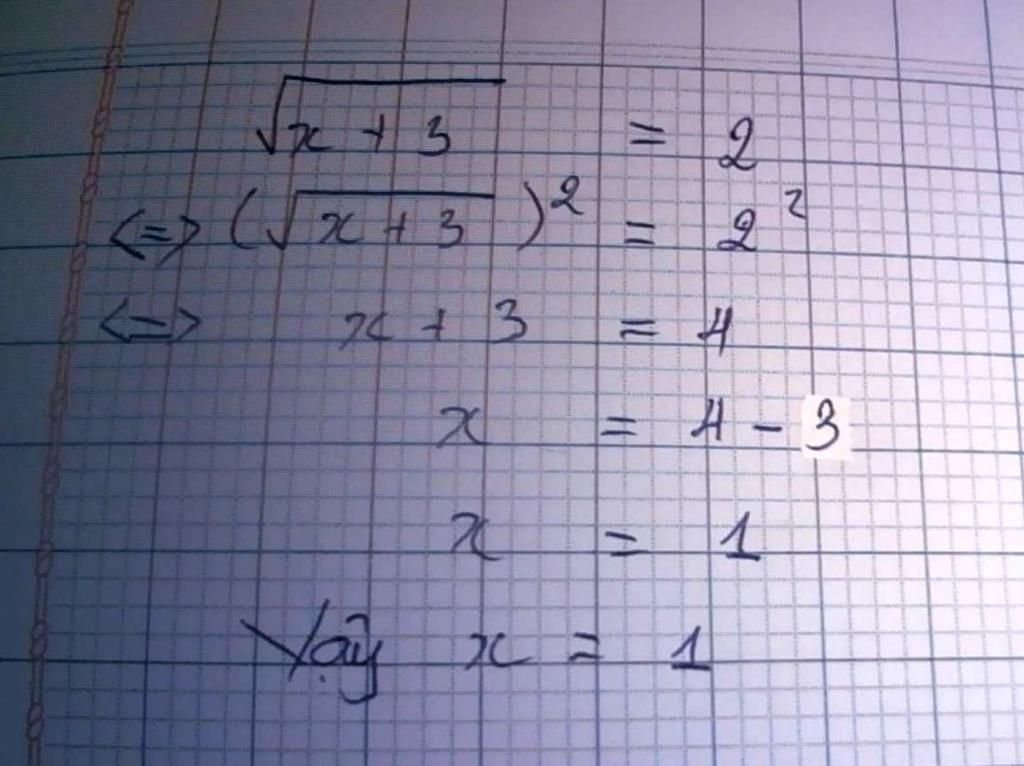 √x + 3 = 2
<=> (√x + 3)² = 2²
<=> x + 3 = 4
x = 4 - 3
x = 1
Vậy x = 1